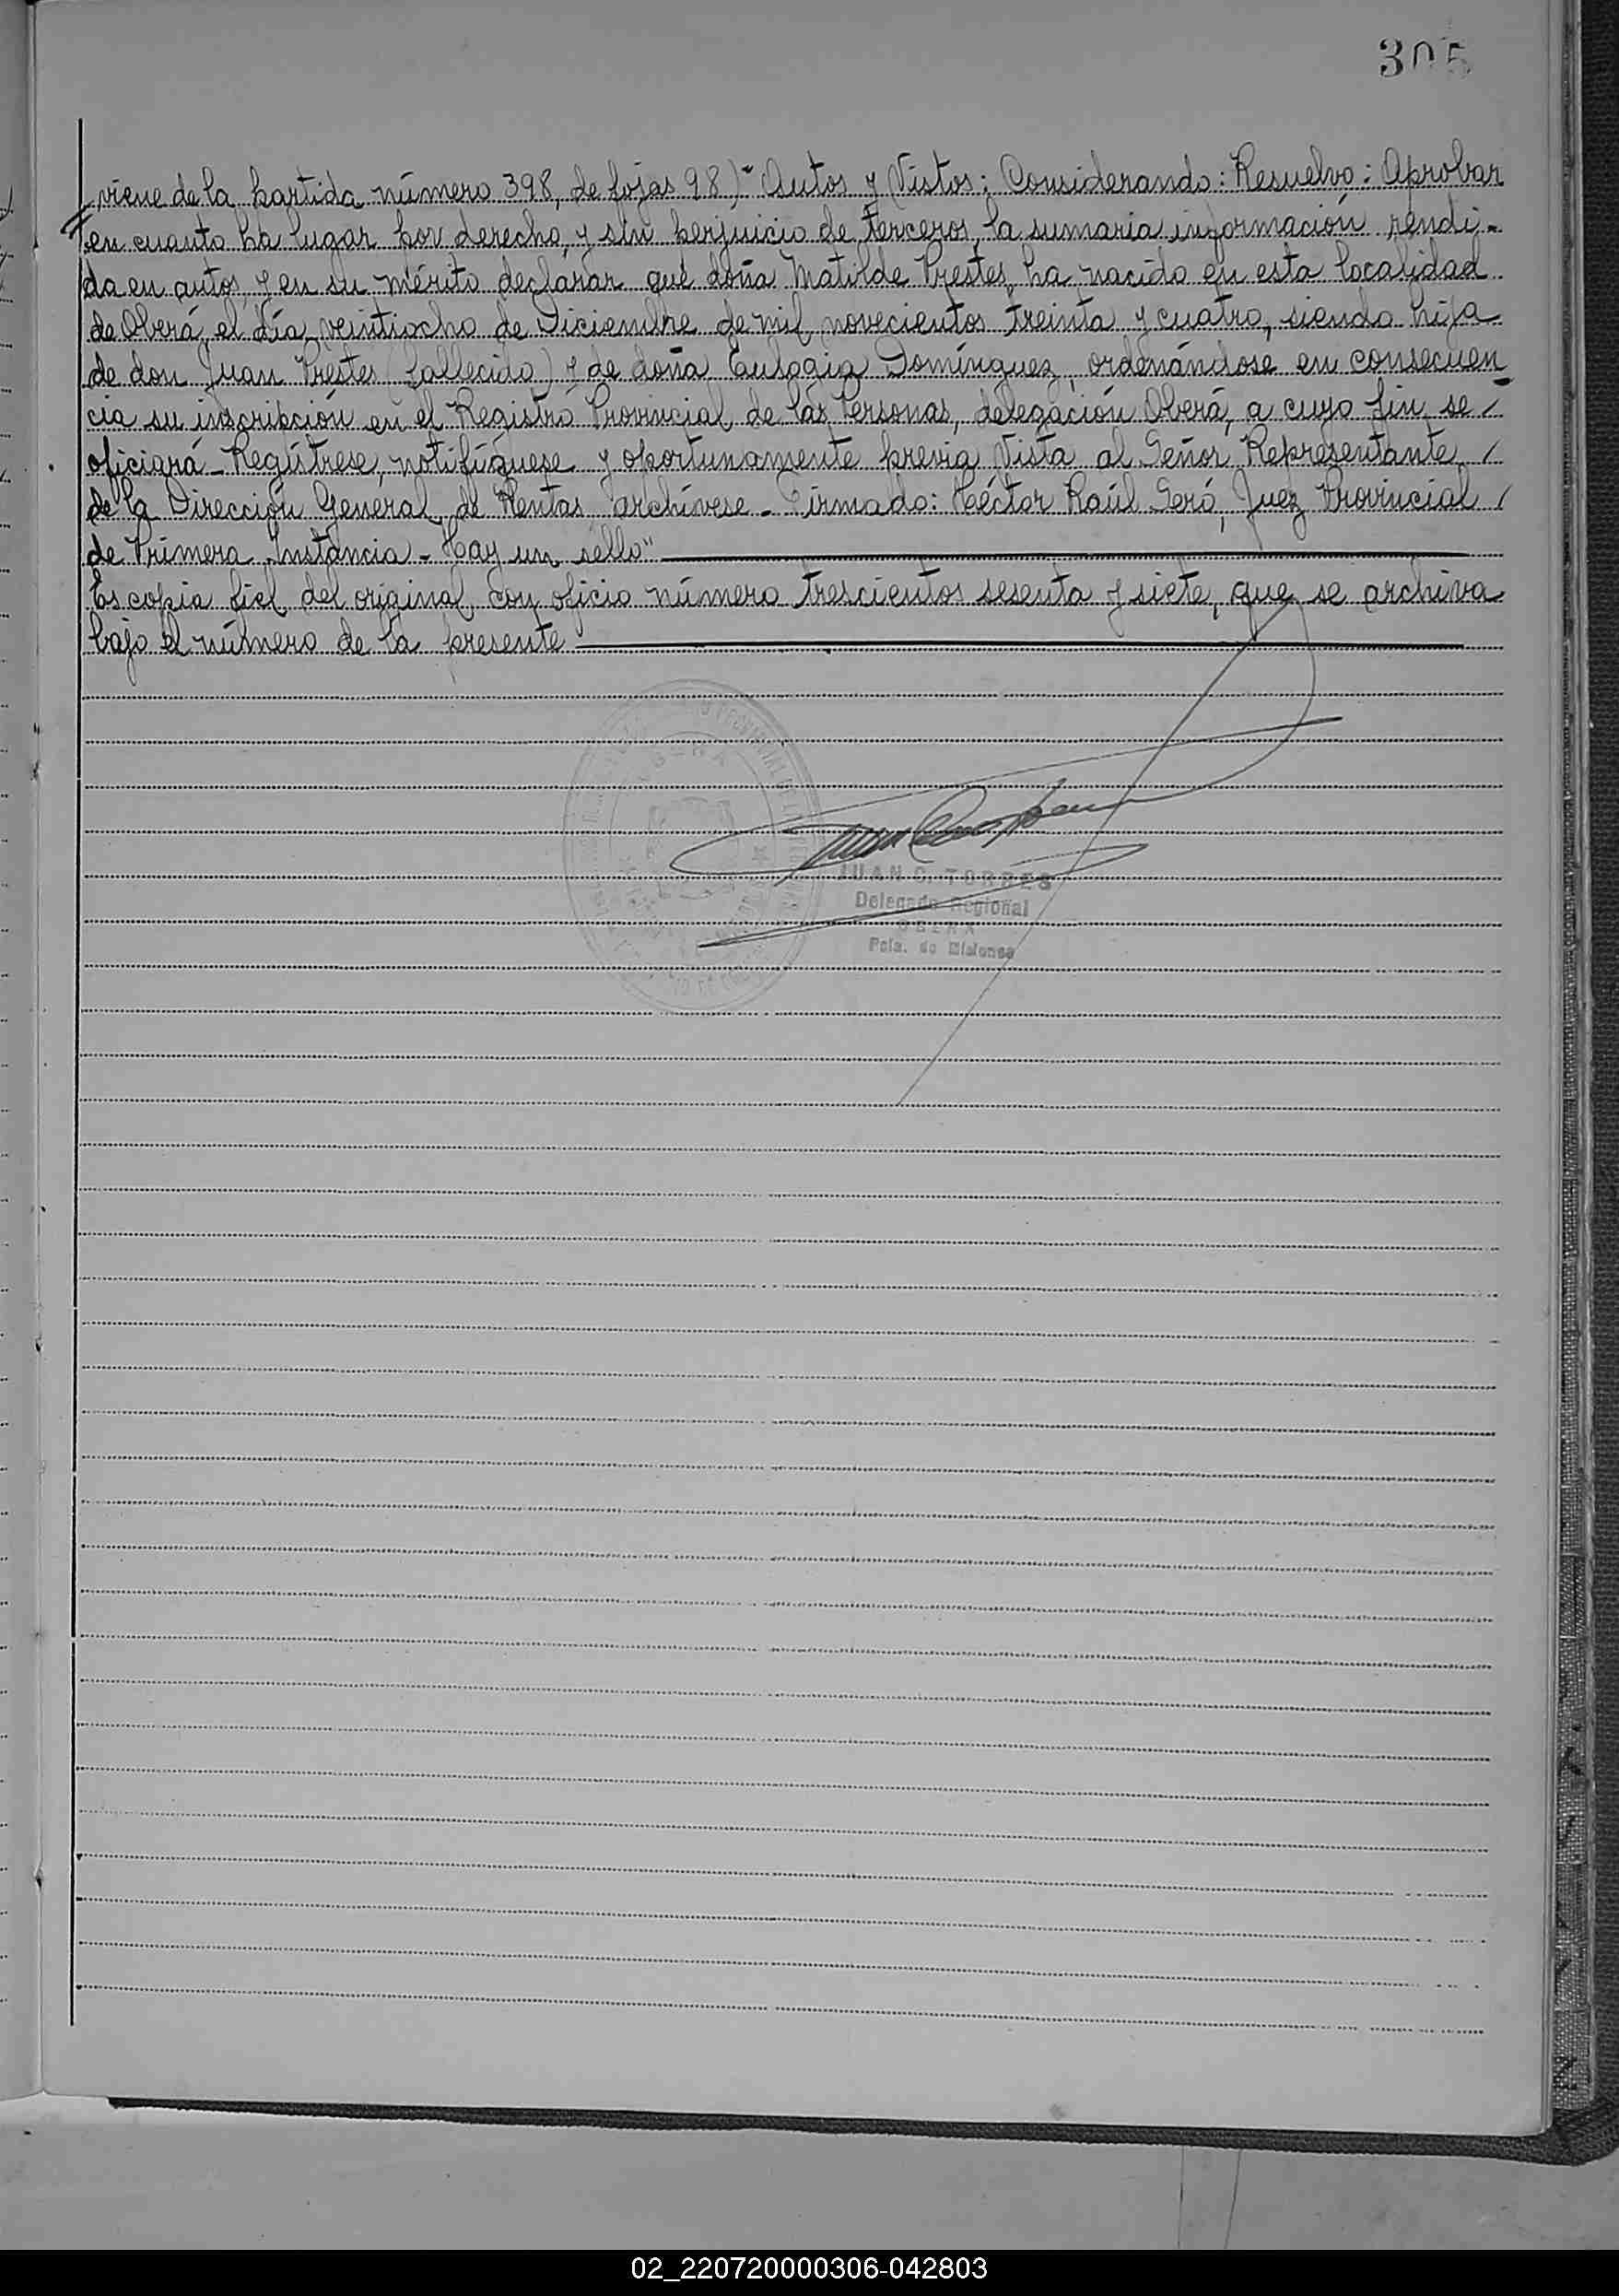 305
(viene de la partida número 398, de fojas 98).- "Autos y Vistos: Considerando: Resuelvo: Aprobar
en cuanto ha lugar por derecho, y sin perjuicio de terceros, la sumaria información rendi-
da en autos, y en su mérito declarar que doña Matilde Prestes, ha nacido en esta localidad
de Oberá, el día veintiocho de Diciembre de mil novecientos treinta y cuatro, siendo hija
de don Juan Prestes (fallecido) y de doña Eulogia Domínguez, ordenándose en consecuen
cia su inscripción en el Registro Provincial de las Personas, delegación Oberá, a cuyo fin se /
oficiará - Regístrese, notifíquese y oportunamente previa Vista al Señor Representante /
de la Dirección General de Rentas archívese - Firmado: Héctor Raúl Seró, Juez Provincial /
de Primera Instancia - Hay un sello"
Es copia fiel del original, con oficio número trescientos sesenta y siete, que se archiva
bajo el número de la presente
OBERA
JUAN C. TORRES
Delegado Regional
OBERA
Pcia. de Misiones
02_220720000306-042803